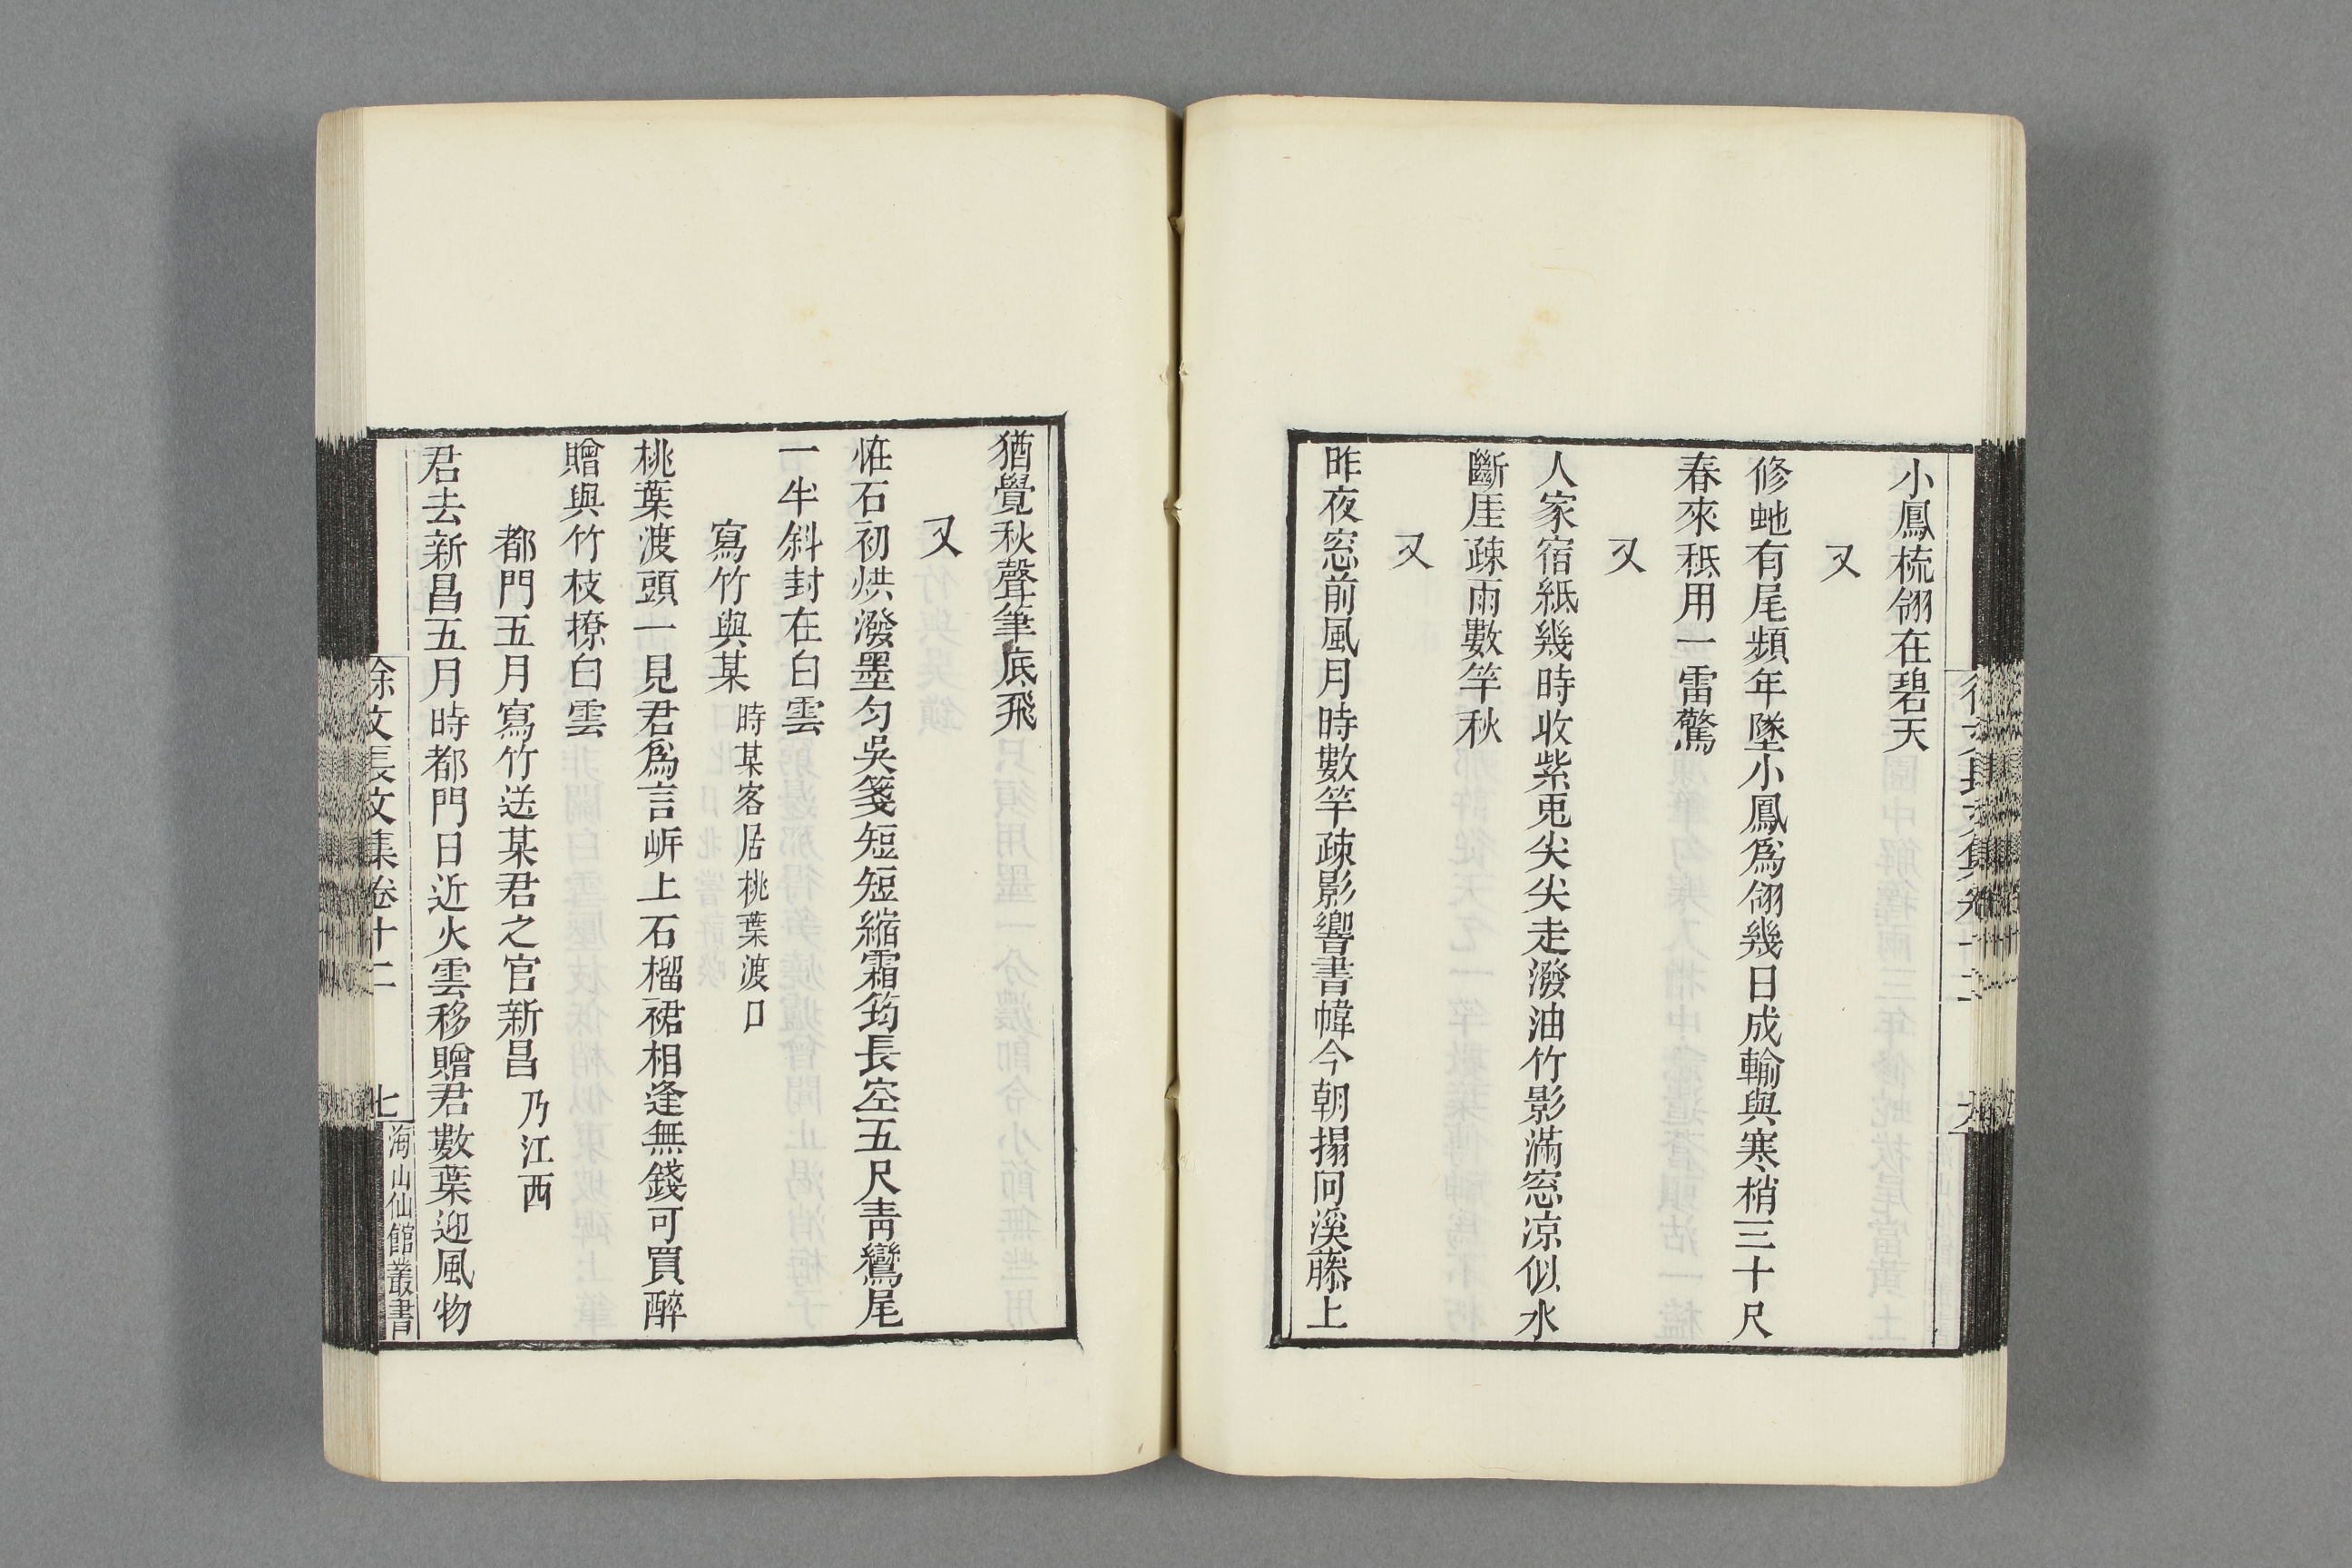 小鳳梳翎在碧天
又
修虵有尾頻年墜小鳳為翎幾日成輸與寒梢三十尺
春來秪用一雷驚
又
人家宿紙幾時收紫兎尖尖走潑油竹影滿窓凉似水
斷厓疎雨數竿秋
又
昨夜窓前風月時數竿疎影響書幃今朝搨向溪藤上
猶覺秋聲筆底飛
又
恠石初烘潑墨勻吳箋短短縮霜筠長空五尺青鸞尾
一半斜封在白雲
寫竹與某時某客居桃葉渡口
桃葉渡頭一見君為言㟁上石榴裙相逢無錢可買醉
贈與竹枝撩白雲
都門五月寫竹送某君之官新昌乃江西
君去新昌五月時都門日近火雲移贈君數葉迎風物
徐文長文集卷十二
七
海山仙館叢書